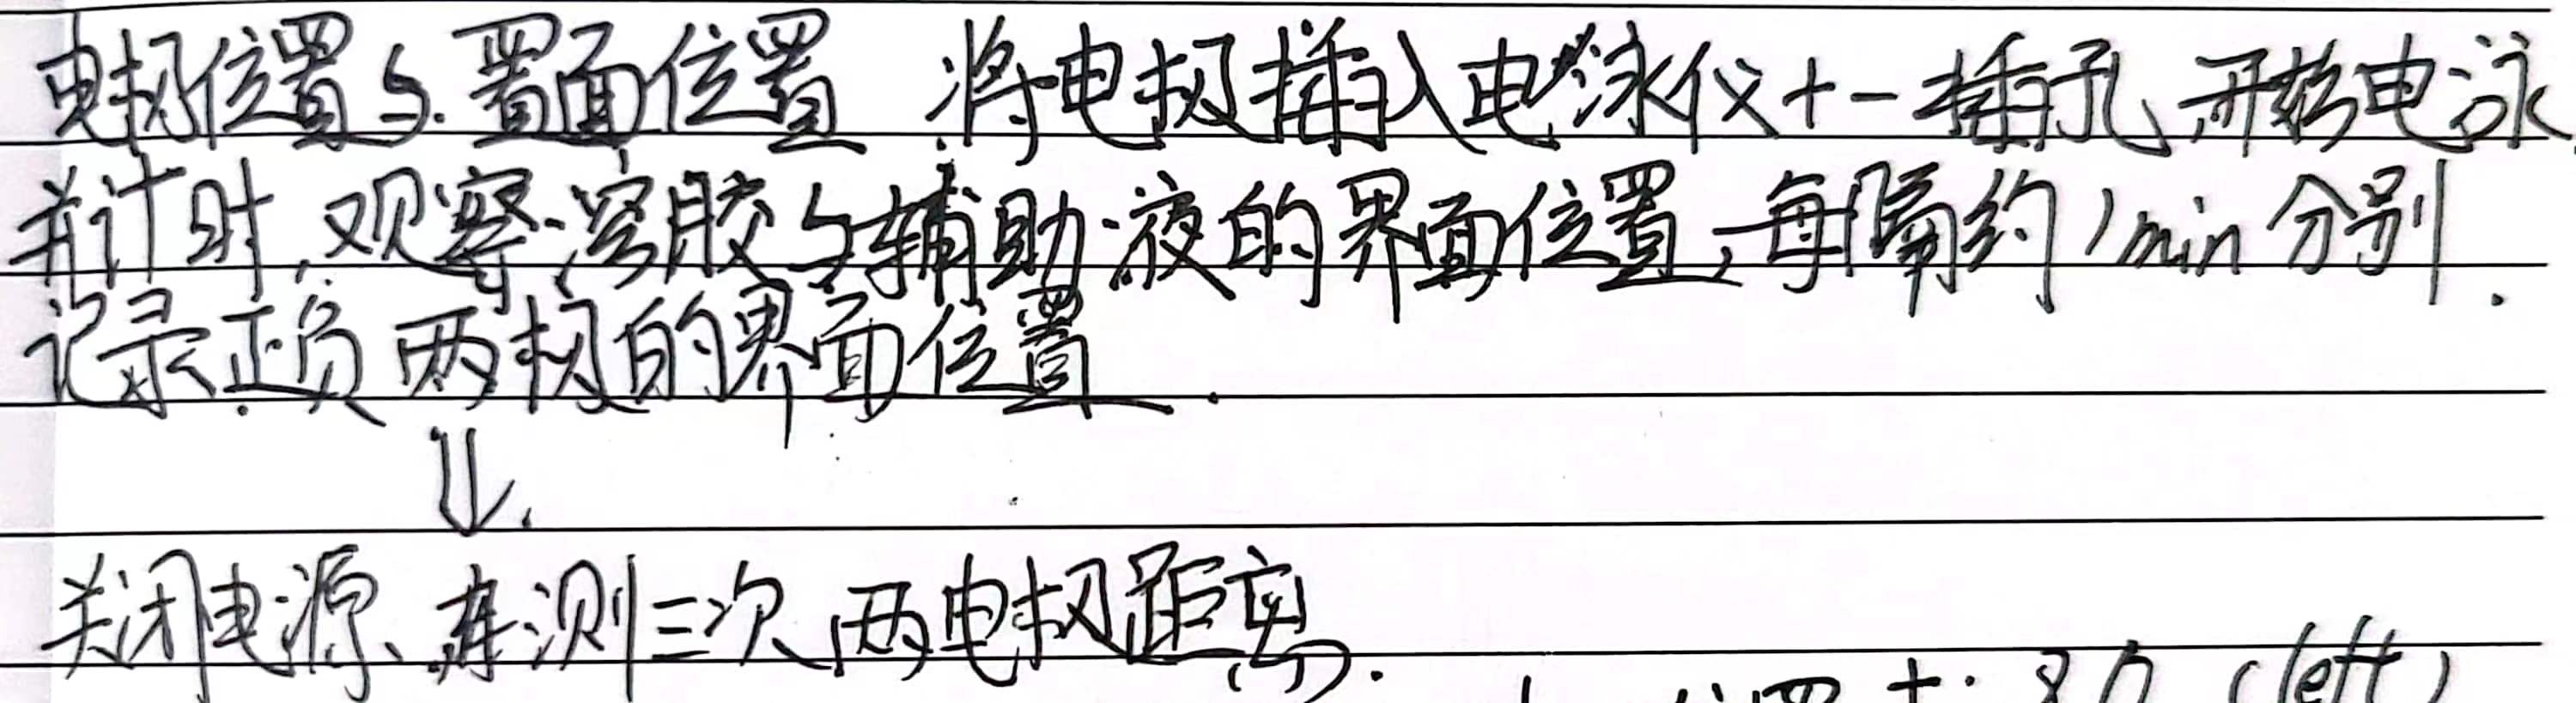 电极位置与界面位置 将电极插入电泳仪+-插孔,开始电泳.
并计时,观察溶胶与辅助液的界面位置,每隔约1min分别.
记录正负两极的界面位置.
⇓.
关闭电源、再测三次,两电极距离.
+: 8.0 (left)